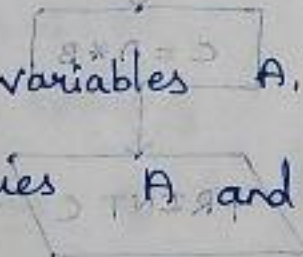 variables A,
ies A and